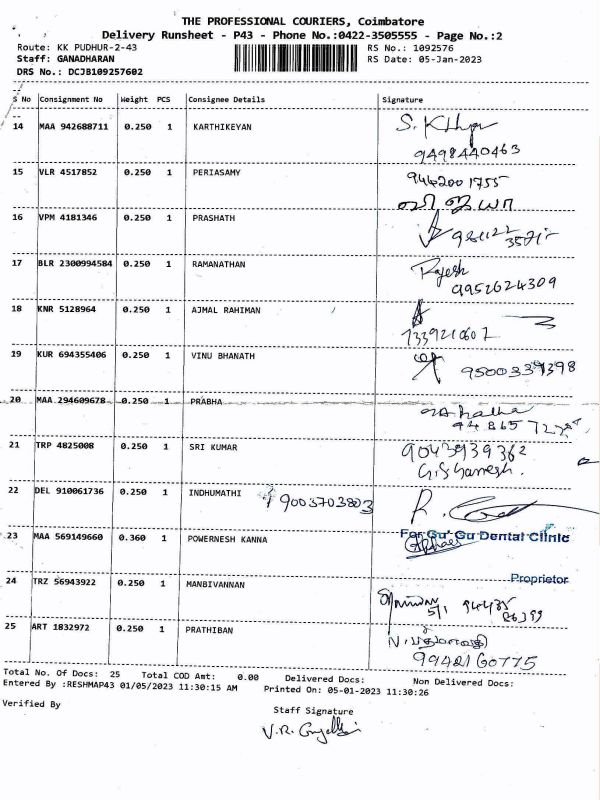 THE PROFESSIONAL COURIERS, Coimbatore
Delivery Runsheet - P43 - Phone No.:0422-3505555 - Page No.:2
Route: KK PUDHUR-2-43 RS No.: 1092576
Staff: GANADHARAN RS Date: 05-Jan-2023
DRS No.: DCJB109257602
S No Consignment No Weight PCS Consignee Details Signature
14 MAA 942688711 0.250 1 KARTHIKEYAN
9498440463
15 VLR 4517852 0.250 1 PERIASAMY 9442001755
விஜயா
16 VPM 4181346 0.250 1 PRASHATH
17 BLR 2300994584 0.250 1 RAMANATHAN Rajesh
9952624309
18 KNR 5128964 0.250 1 AJMAL RAHIMAN
7339210607
19 KUR 694355406 0.250 1 VINU BHANATH
9500339398
20 MAA 294609678 0.250 1 PRABHA
21 TRP 4825008 0.250 1 SRI KUMAR 9043939362
G.S Ganesh.
22 DEL 910061736 0.250 1 INDHUMATHI 9003703803
23 MAA 569149660 0.360 1 POWERNESH KANNA For Gu Gu Dental Clinic
Proprietor
24 TRZ 56943922 0.250 1 MANBIVANNAN
25 ART 1832972 0.250 1 PRATHIBAN
9942160775
Total No. Of Docs: 25 Total COD Amt: 0.00 Delivered Docs: Non Delivered Docs:
Entered By :RESHMAP43 01/05/2023 11:30:15 AM Printed On: 05-01-2023 11:30:26
Verified By Staff Signature